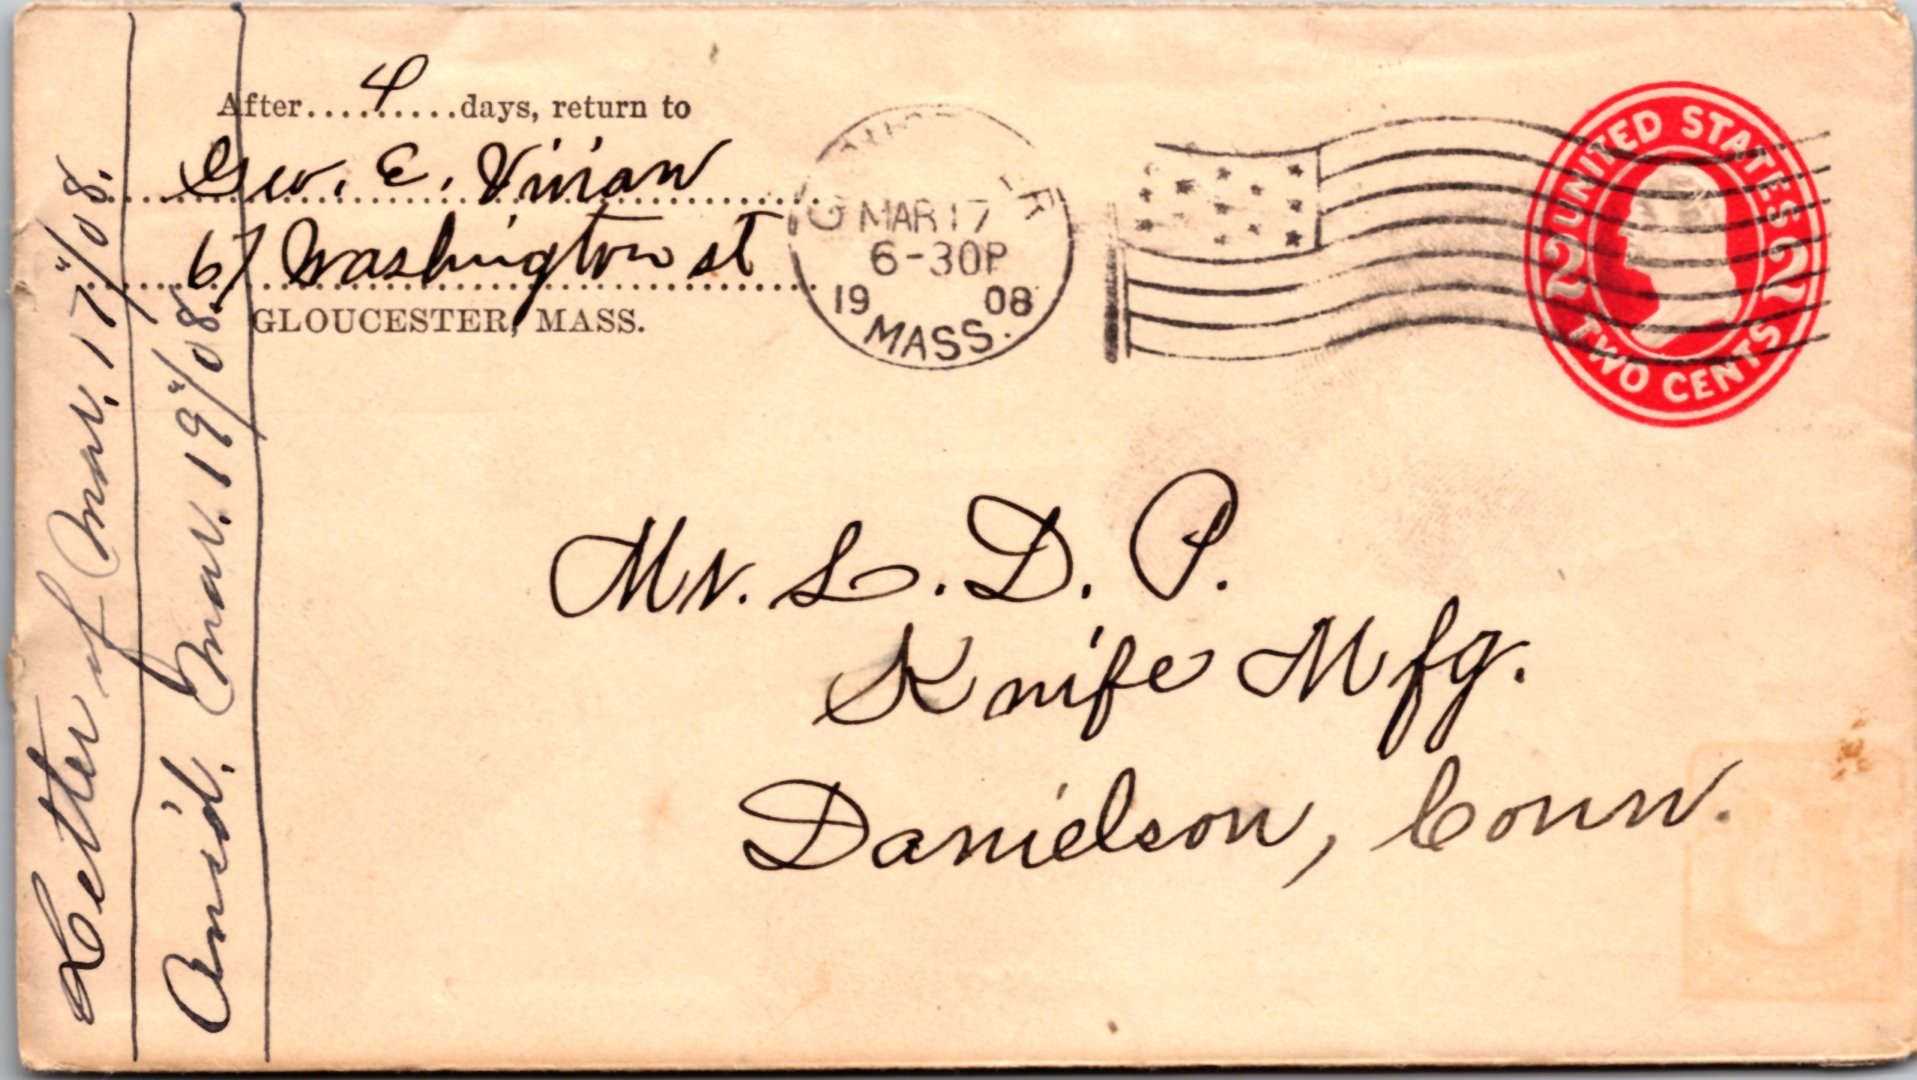 After....4.....days, return to
Geo. E. Vivian
67 Washington st
GLOUCESTER, MASS.
MAR 17
6-30P
19 08
MASS.
UNITED STATES
2 2
TWO CENTS
Mr. L. D. P.
Knife Mfg.
Danielson, Conn.
Letter of Mar. 17"/08.
Ans'd. Mar. 19"/08.